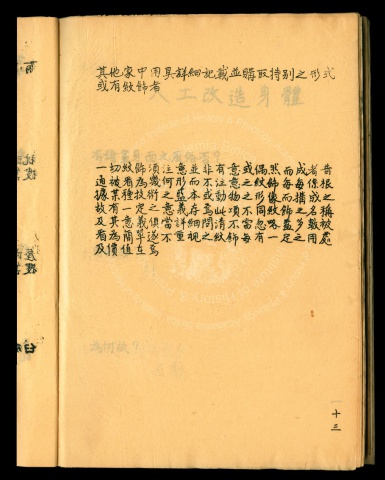 其他家中用具詳細記載並購取特别之形式
或有紋飾者
一切紋飾須注意並非有意或偶然而成者普
通被看為幾何形而不注意之紋飾每每係根
據某種技術之基本或動物之形像而構成之
故有一定之意義存焉此項不同紋飾之名稱
及其意義俱當詳細問清不當忽略蓋多數被
看為簡單遂不重視之紋飾每有一定之用處
及價值在焉
人工改造身體
一十三